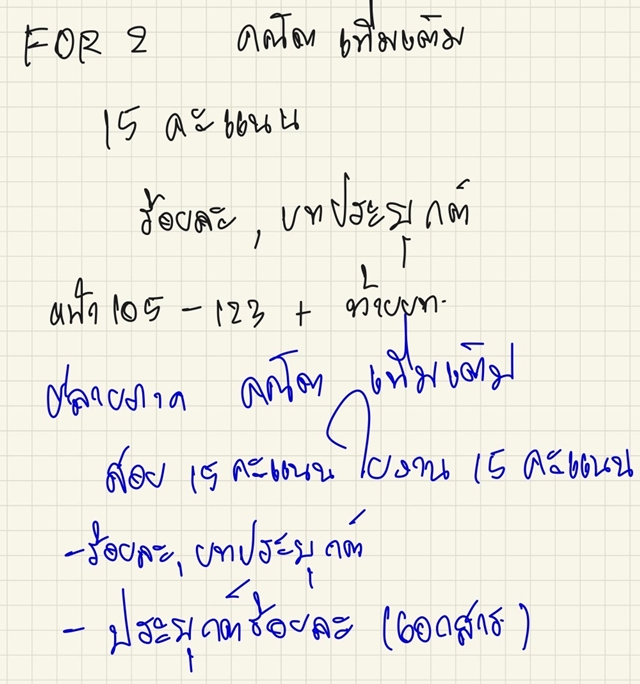 FOR 2 คณิต เพิ่มเติม
15 คะแนน
ร้อยละ, บทประยุกต์
หน้า 105 - 123 + ท้ายบท.
ปลายภาค คณิต เพิ่มเติม
สอบ 15 คะแนน ใบงาน 15 คะแนน
- ร้อยละ, บทประยุกต์
- ประยุกต์ร้อยละ (เอกสาร)